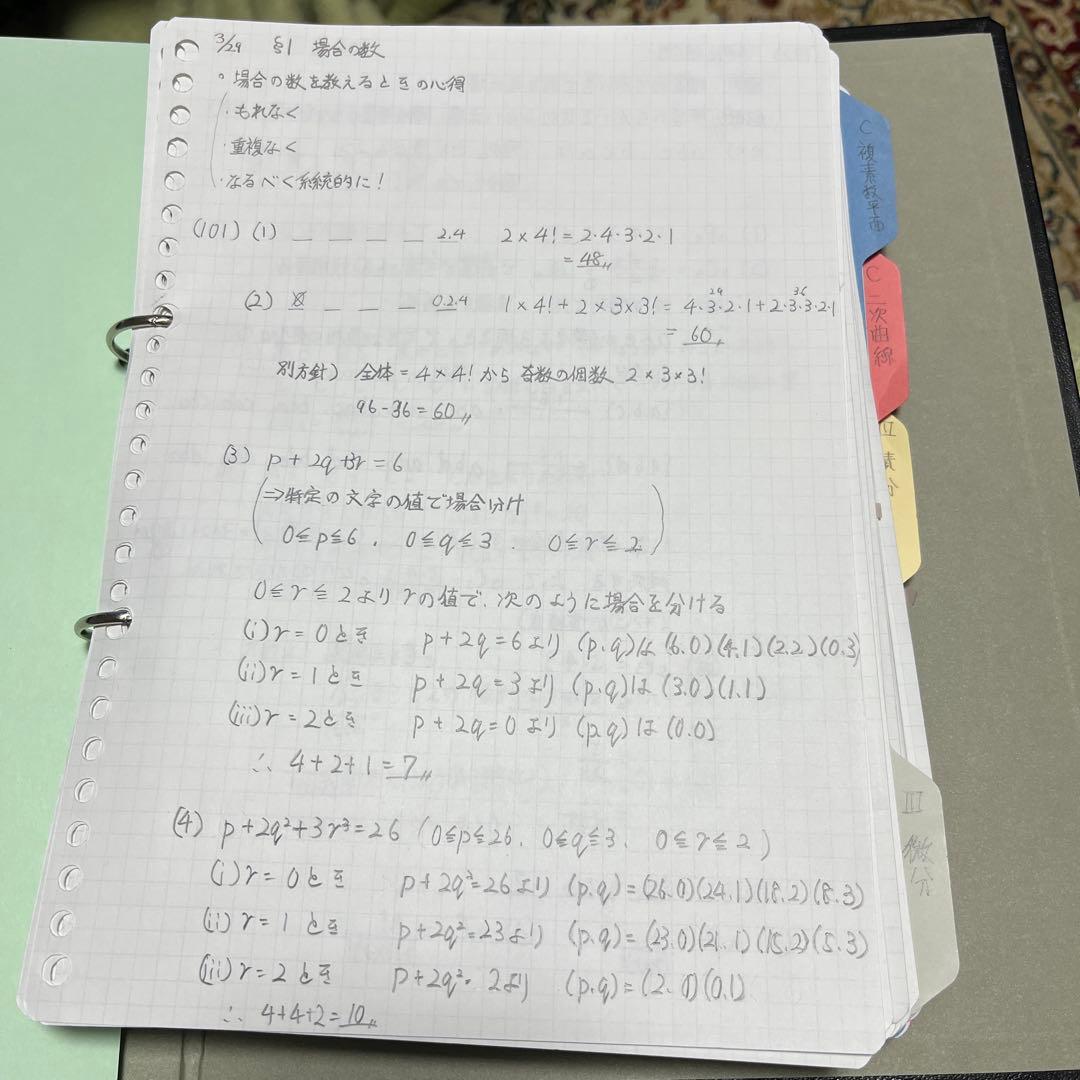 3/29 §1 場合の数
◦場合の数を数えるときの心得
・もれなく
・重複なく
・なるべく系統的に!
(101) (1) _ _ _ _ 2.4 2×4! = 2・4・3・2・1
= 48〃
(2) _ _ _ 0.2.4 1×4! + 2×3×3! = 4・3・2・1 + 2・3・3・2・1
24 36
= 60〃
別方針) 全体 = 4×4! から 奇数の個数 2×3×3!
96-36 = 60〃
(3) p + 2q + 3r = 6
⇒特定の文字の値で場合分け
0≦p≦6 , 0≦q≦3 , 0≦r≦2
0≦r≦2より rの値で、次のように場合を分ける
(i) r = 0とき p + 2q = 6より (p.q)は (6.0)(4.1)(2.2)(0.3)
(ii) r = 1とき p + 2q = 3より (p.q)は (3.0)(1.1)
(iii) r = 2とき p + 2q = 0より (p.q)は (0.0)
∴ 4+2+1 = 7〃
(4) p+2q²+3r³=26 (0≦p≦26, 0≦q≦3, 0≦r≦2)
(i) r = 0とき p+2q²=26より (p.q) = (26.0)(24.1)(18.2)(8.3)
(ii) r = 1とき p+2q²=23より (p.q) = (23.0)(21.1)(15.2)(5.3)
(iii) r = 2とき p+2q²= 2より (p.q) = (2.0)(0.1)
∴ 4+4+2=10〃
C 複素数平面
C 二次曲線
II 積分
III 微分